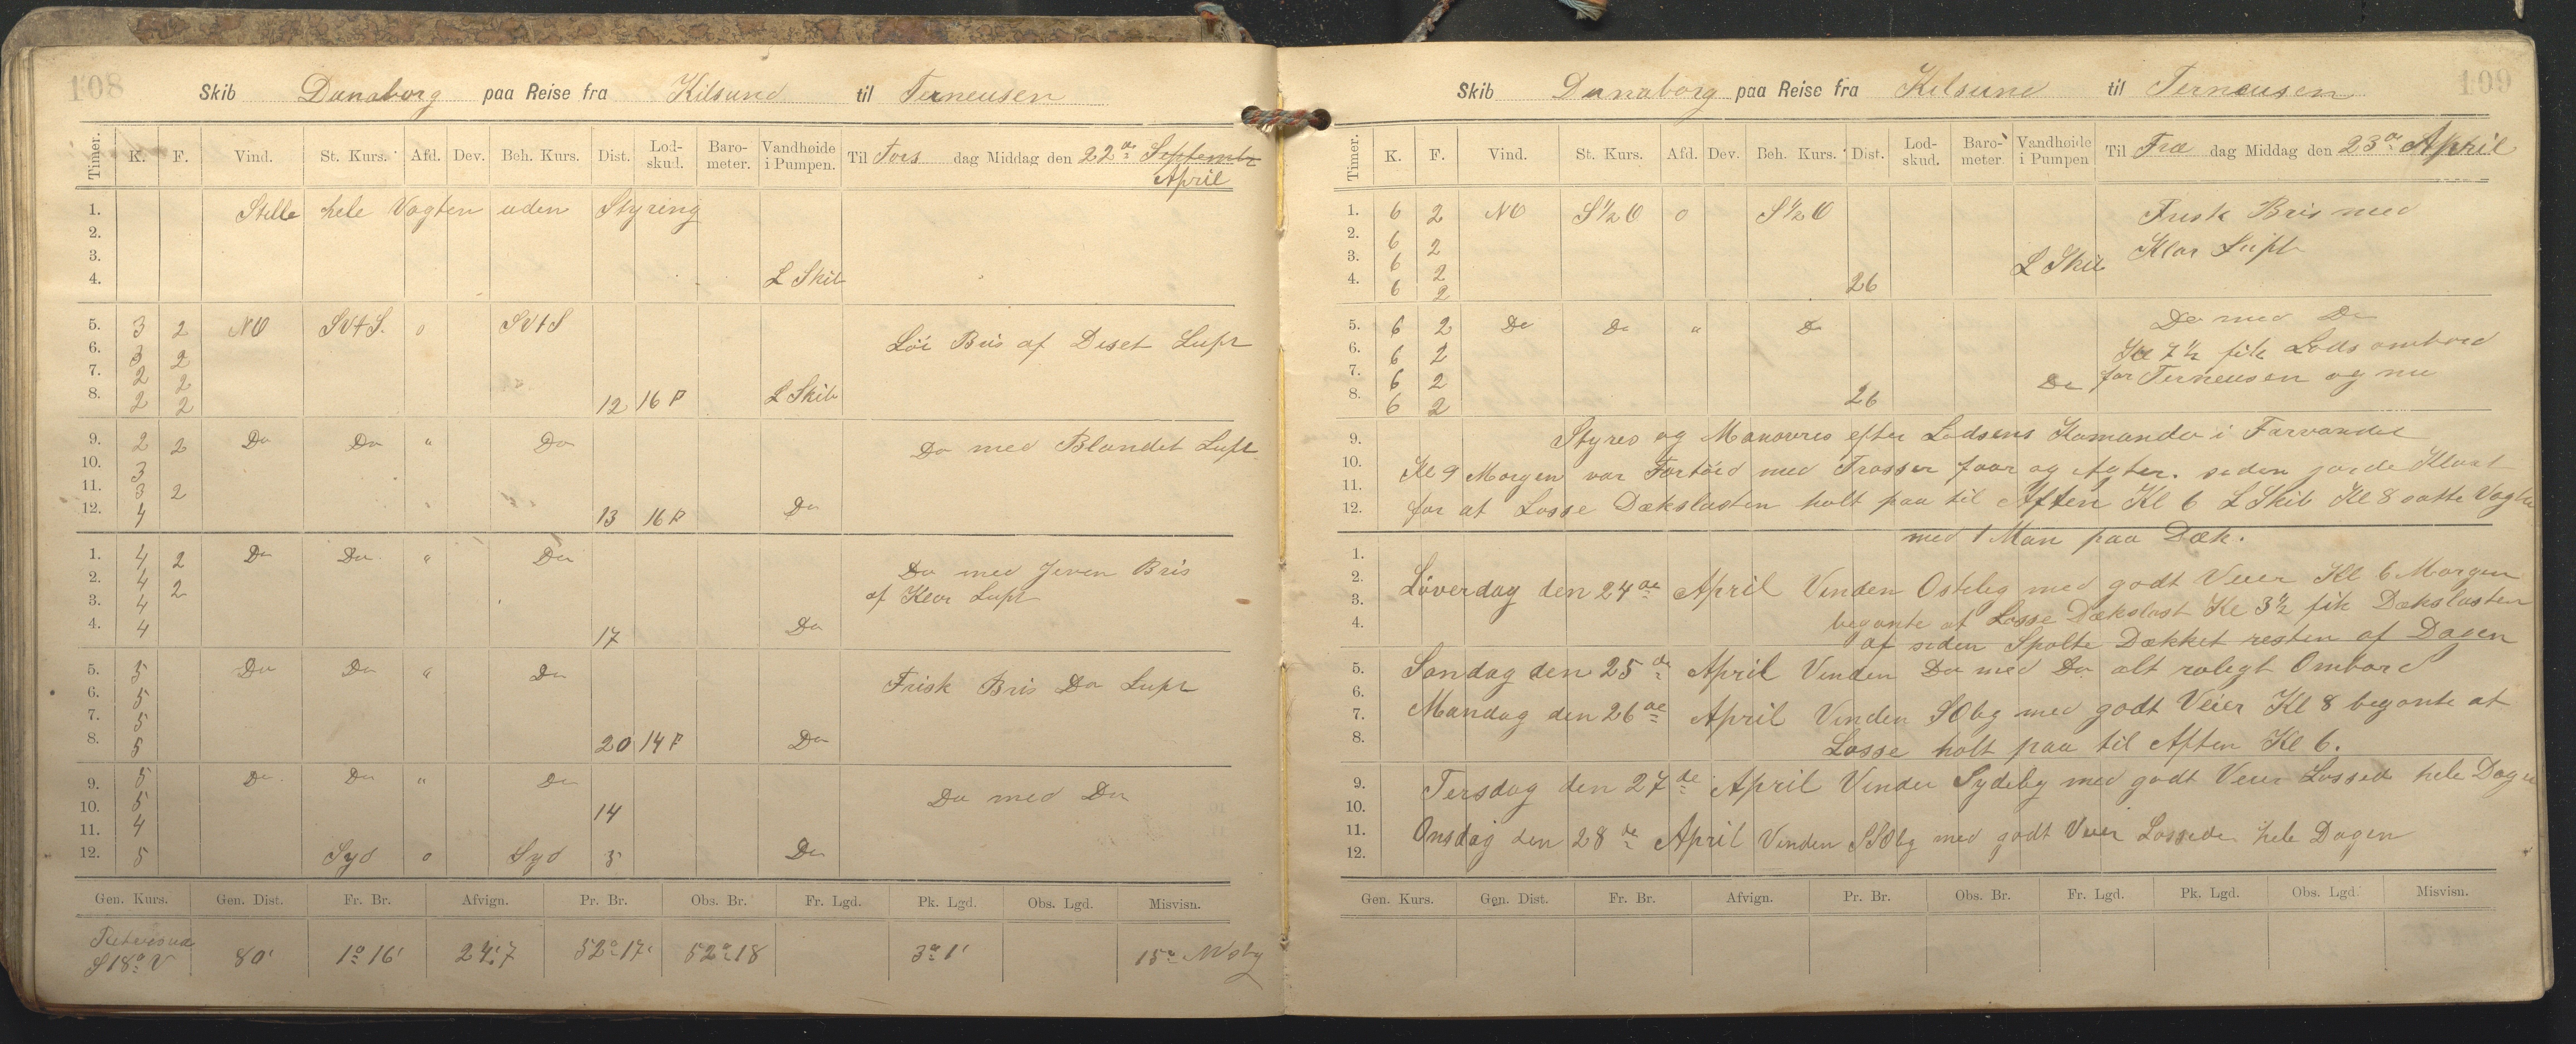 108
Skib Dunaborg paa Reise fra Kilsund til Terneusen
Timer. K. F. Vind. St. Kurs. Afd. Dev. Beh. Kurs. Dist. Lod-skud. Baro-meter. Vandhøide i Pumpen. Til Tors dag Middag den 22de Septembr
April
1. Stille hele Vagten uden Styring
2.
3.
4. L Skib
5. 3 2 NO SVtS. o SVtS
6. 3 2 Löi Bris af Diset Luft
7. 2 2
8. 2 2 12 16 P L Skib
9. 2 2 Do Do " Do Do med Blandet Luft
10. 3
11. 3 2
12. 4 13 16 P Do
1. 4 2 Do Do " Do Do med Jeven Bris
2. 4 2 af Klar Luft
3. 4
4. 4 17 Do
5. 5 Do Do " Do Frisk Bris Do Luft
6. 5
7. 5
8. 5 20 14 P Do
9. 5 Do Do " Do Do med Do
10. 5 14
11. 4
12. 5 Syd o Syd 5 Do
Gen. Kurs. Gen. Dist. Fr. Br. Afvign. Pr. Br. Obs. Br. Fr. Lgd. Pk. Lgd. Obs. Lgd. Misvisn.
S 18° V 80' 1° 16' 24.'7 52° 17' 52° 18 3° 1' 15°
109
Skib Dunaborg paa Reise fra Kilsund til Terneusen
Timer. K. F. Vind. St. Kurs. Afd. Dev. Beh. Kurs. Dist. Lod-skud. Baro-meter. Vandhøide i Pumpen Til Fre dag Middag den 23de April
1. 6 2 NO S½O o S½O Frisk Bris med
2. 6 2 Klar Luft
3. 6 2 L Skib
4. 6 2 26
5. 6 2 Do Do " Do Do med Do
6. 6 2 Kl 7½ fik Lods ombord
7. 6 2 Do for Terneusen og nu
8. 6 2 26
9. Styres og Manovres efter Lodsens Komando i Farvandet
10. Kl 9 Morgen var Fortöid med Trosser foor og Agter. siden gorde Klart
11.
12. for at Losse Dækslasten holt paa til Aften Kl 6 L Skib Kl 8 satte Vagten
med 1 Man paa Dæk.
1.
2. Löverdag den 24de April Vinden Ostelig med godt Veier Kl 6 Morgen
3. begonte at Losse Dækslast Kl 3½ fik Dækslasten
4. af siden Spolte Dækket resten af Dagen
5. Sondag den 25de April Vinden Do med Do alt roligt Ombord
6.
7. Mandag den 26de April Vinden SOlig med godt Veier Kl 8 begonte at
8. Losse holt paa til Aften Kl 6.
9. Tersdag den 27de April Vinden Sydelig med godt Veier Lossede hele Dagen
10.
11. Onsdag den 28de April Vinden SSOlig med godt Veier Lossede hele Dagen
12.
Gen. Kurs. Gen. Dist. Fr. Br. Afvign. Pr. Br. Obs. Br. Fr. Lgd. Pk. Lgd. Obs. Lgd. Misvisn.